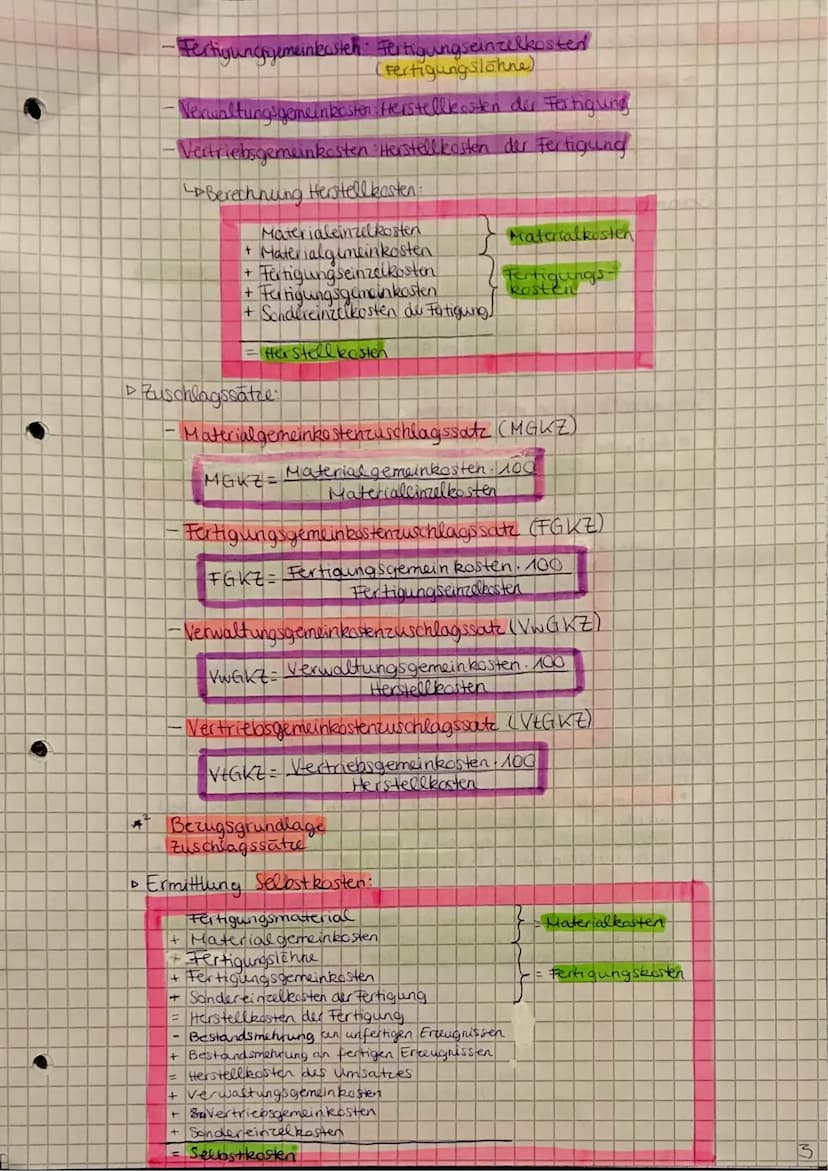 - Fertigungsgemeinkosten: Fertigungseinzelkosten
(Fertigungslöhne)
- Verwaltungsgemeinkosten: Herstellkosten der Fertigung
- Vertriebsgemeinkosten: Herstellkosten der Fertigung
↳ Berechnung Herstellkosten:
Materialeinzelkosten
+ Materialgemeinkosten
} Materialkosten
+ Fertigungseinzelkosten
+ Fertigungsgemeinkosten
+ Sondereinzelkosten der Fertigung
} Fertigungs-
kosten
= Herstellkosten
▷ Zuschlagssätze:
- Materialgemeinkostenzuschlagssatz (MGKZ)
MGKZ = Materialgemeinkosten · 100
Materialeinzelkosten
- Fertigungsgemeinkostenzuschlagssatz (FGKZ)
FGKZ = Fertigungsgemeinkosten · 100
Fertigungseinzelkosten
- Verwaltungsgemeinkostenzuschlagssatz (VwGKZ)
VwGKZ = Verwaltungsgemeinkosten · 100
Herstellkosten
- Vertriebsgemeinkostenzuschlagssatz (VtGKZ)
VtGKZ = Vertriebsgemeinkosten · 100
Herstellkosten
*² Bezugsgrundlage
Zuschlagssätze
▷ Ermittlung Selbstkosten:
Fertigungsmaterial
+ Materialgemeinkosten
} = Materialkosten
+ Fertigungslöhne
+ Fertigungsgemeinkosten
+ Sondereinzelkosten der Fertigung
} = Fertigungskosten
= Herstellkosten der Fertigung
- Bestandsmehrung an unfertigen Erzeugnissen
+ Bestandsmehrung an fertigen Erzeugnissen
= Herstellkosten des Umsatzes
+ Verwaltungsgemeinkosten
+ Vertriebsgemeinkosten
+ Sondereinzelkosten
= Selbstkosten
3